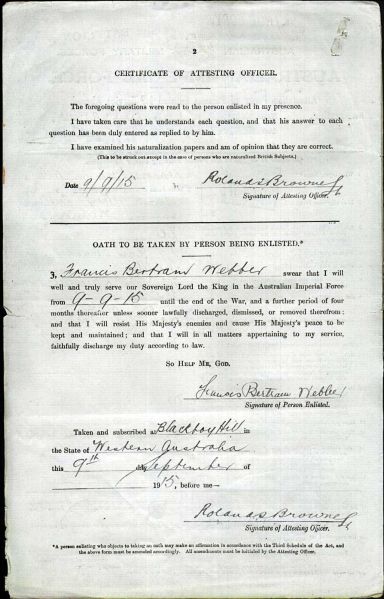 2
CERTIFICATE OF ATTESTING OFFICER.
The foregoing questions were read to the person enlisted in my presence.
I have taken care that he understands each question, and that his answer to each
question has been duly entered as replied to by him.
I have examined his naturalization papers and am of opinion that they are correct.
(This to be struck out except in the case of persons who are naturalized British Subjects.)
Date 9/9/15 Roland S Browne
Signature of Attesting Officer.
OATH TO BE TAKEN BY PERSON BEING ENLISTED.*
I, Francis Bertram Webber swear that I will
well and truly serve our Sovereign Lord the King in the Australian Imperial Force
from 9-9-15 until the end of the War, and a further period of four
months thereafter unless sooner lawfully discharged, dismissed, or removed therefrom;
and that I will resist His Majesty's enemies and cause His Majesty's peace to be
kept and maintained; and that I will in all matters appertaining to my service,
faithfully discharge my duty according to law.
SO HELP ME, GOD.
Francis Bertram Webber
Signature of Person Enlisted.
Taken and subscribed at Blackboy Hill in
the State of Western Australia
this 9th day September of
1915, before me—
Roland S Browne
Signature of Attesting Officer.
*A person enlisting who objects to taking an oath may make an affirmation in accordance with the Third Schedule of the Act, and
the above form must be amended accordingly. All amendments must be initialed by the Attesting Officer.